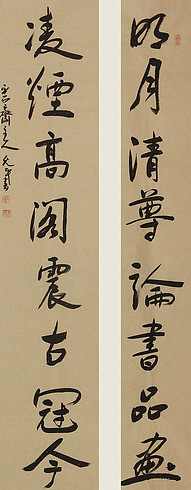 明月清尊論書品画
凌煙高閣震古冠今